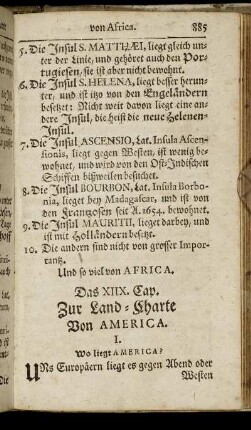 von Africa. 885
5. Die Insul S. MATTHÆI, liegt gleich un-
ter der Linie, und gehöret auch den Por-
tugiesen, sie ist aber nicht bewohnt.
6. Die Insul S. HELENA, liegt besser herun-
ter, und ist itzo von den Engeländern
besetzt: Nicht weit davon liegt eine an-
dere Insul, die heist die neue Helenen-
Insul.
7. Die Insul ASCENSIO, Lat. Insula Ascen-
sionis, liegt gegen Westen, ist wenig be-
wohnet, und wird von den Ost-Indischen
Schiffen bißweilen besuchet.
8. Die Insul BOURBON, Lat. Insula Borbo-
nia, lieget bey Madagascar, und ist von
den Frantzosen seit A. 1654. bewohnet.
9. Die Insul MAURITII, lieget darbey, und
ist mit Holländern besetzt.
10. Die andern sind nicht von grosser Impor-
tantz.
Und so viel von AFRICA.
Das XIIX. Cap.
Zur Land-Charte
Von AMERICA.
I.
Wo liegt AMERICA?
UNs Europäern liegt es gegen Abend oder
Westen